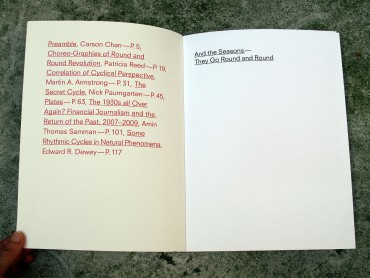 Preamble, Carson Chan—P.5,
Choreo-Graphies of Round and
Round Revolution, Patricia Reed—P.19,
Correlation of Cyclical Perspective,
Martin A. Armstrong—P.31, The
Secret Cycle, Nick Paumgarten—P.45,
Plates—P.63, The 1930s all Over
Again? Financial Journalism and the
Return of the Past, 2007–2009, Amin
Thomas Samman—P.101, Some
Rhythmic Cycles in Natural Phenomena,
Edward R. Dewey—P.117
And the Seasons—
They Go Round and Round